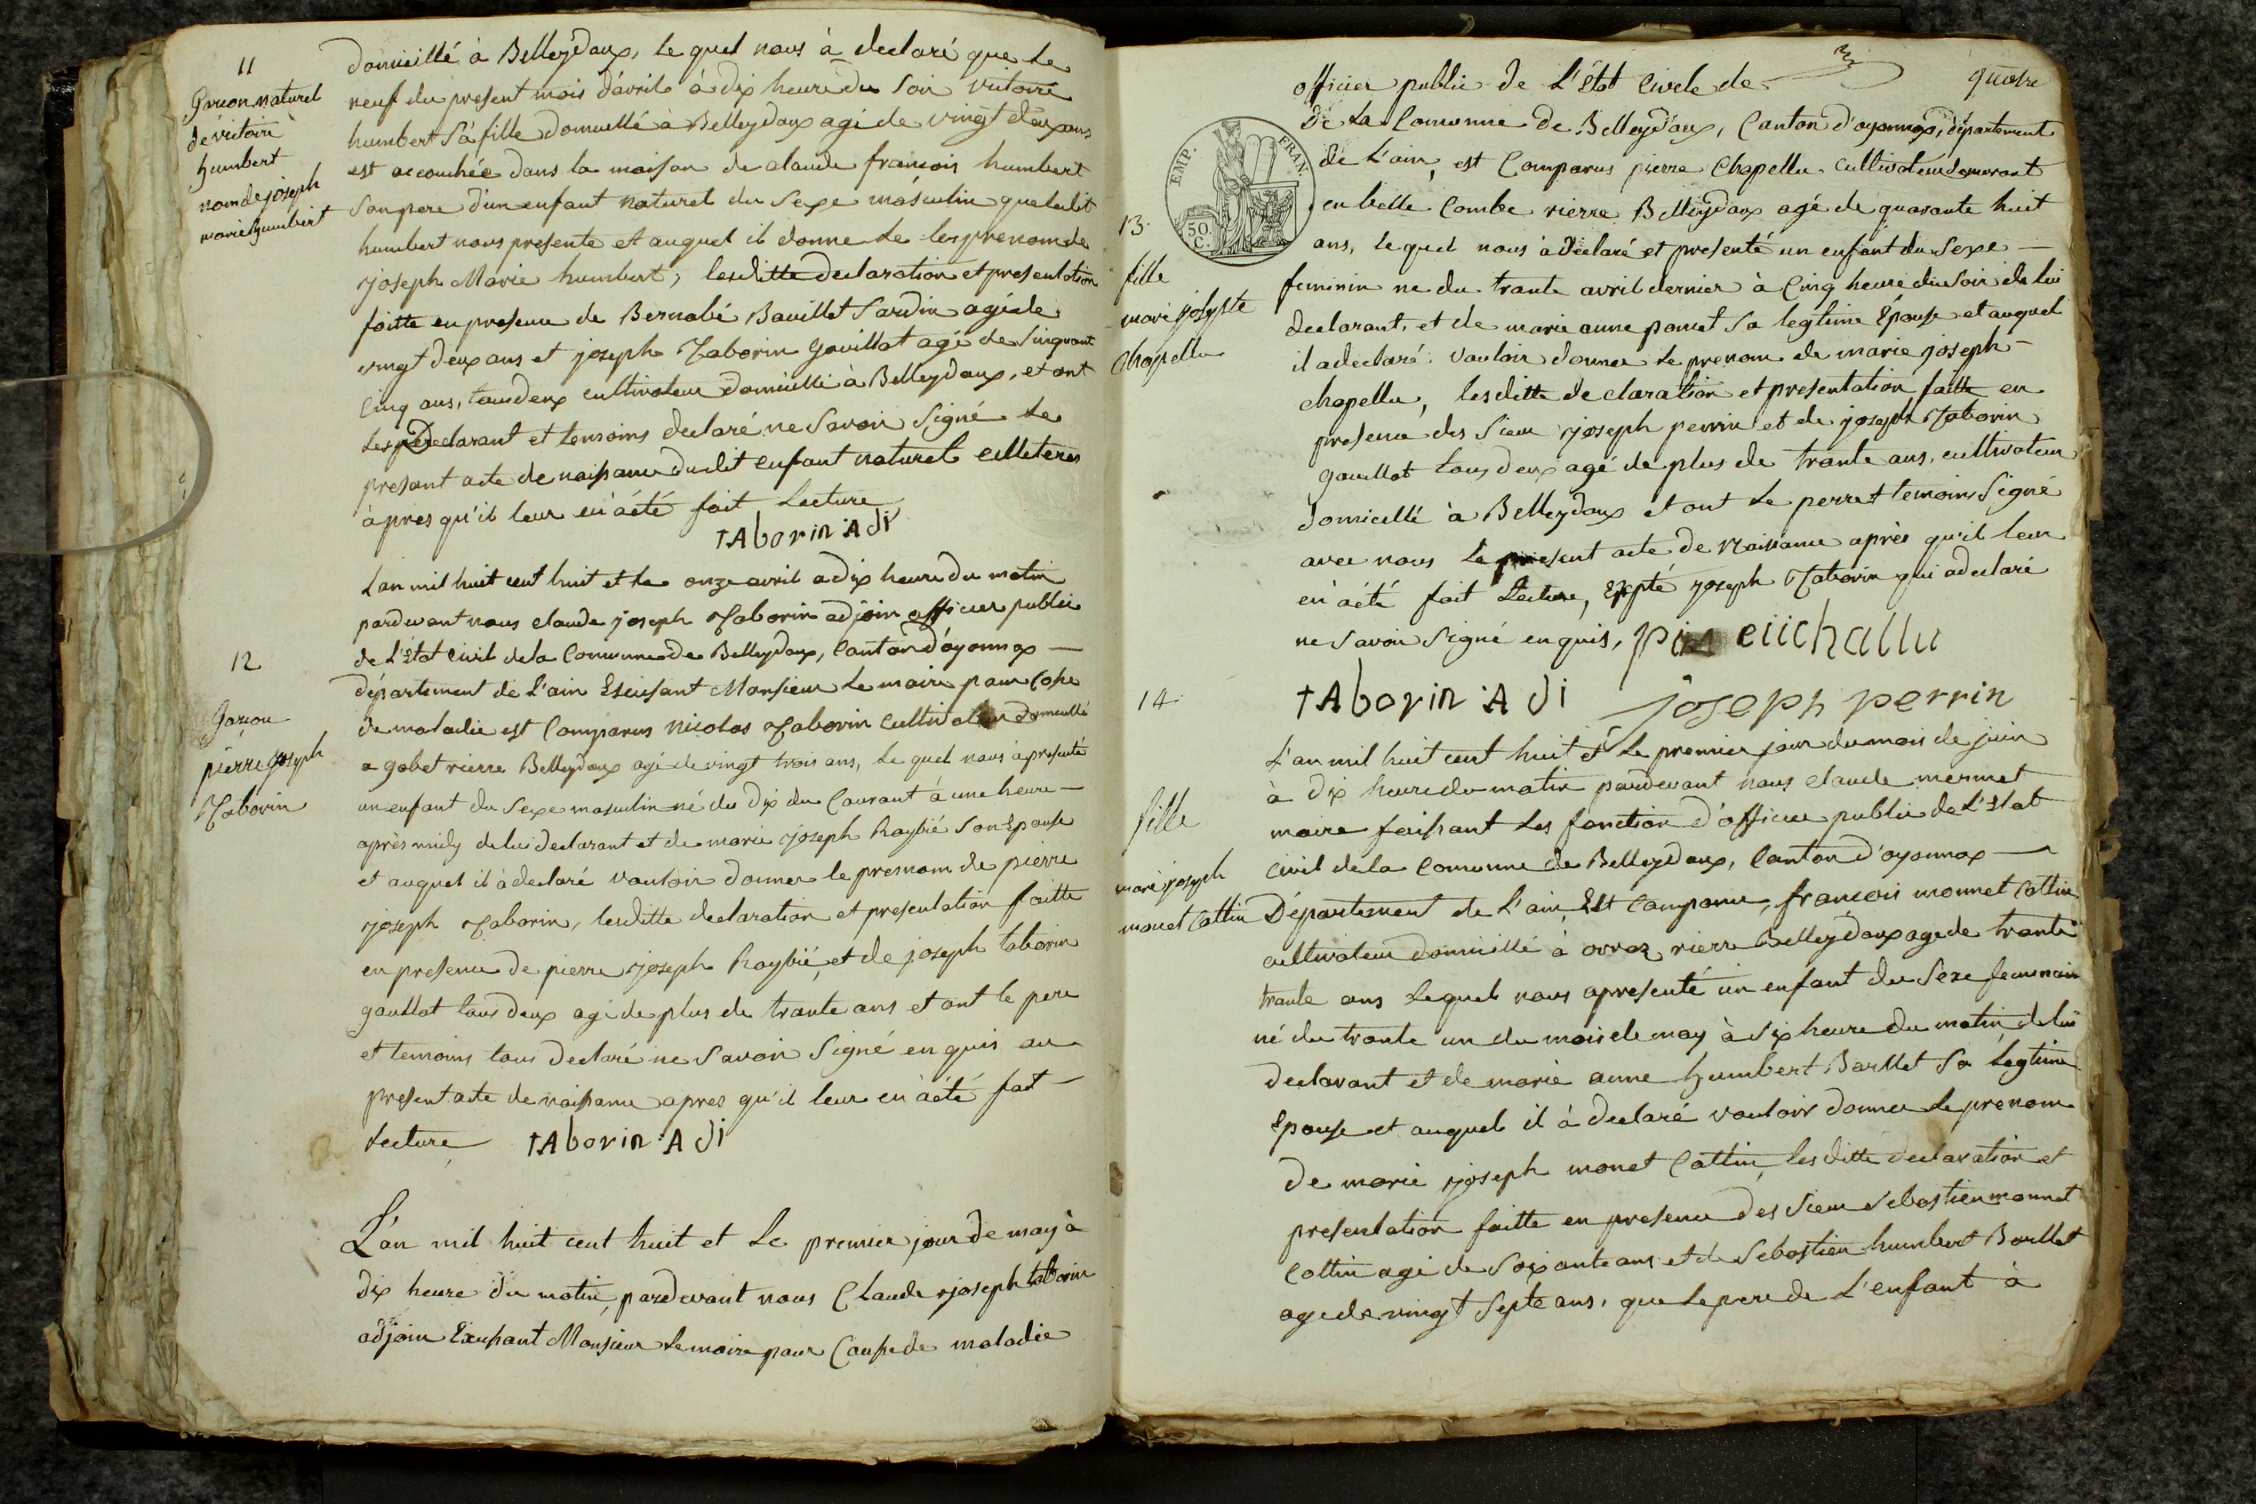 11
Garcon naturel
de victoire
humbert
nom de joseph
marie humbert
domicillé à Belleydoux, le quel nous à declaré que le
neuf du present mois d'avril à dix heure du soir victoire
humbert sa fille domicillé à Belleydoux agé de vingt deux ans
est accouchée dans la maison de claude francois humbert
son pere d'un enfant naturel du sexe masculin que ledit
humbert nous presente et auquel il donne le les prenom de
joseph Marie humbert, lesditte declaration et presentation
faitte en presence de Bernabé Bauillet Sardin agé de
vingt deux ans et joseph Taborin Gouillot agé de sinquant
cinq ans, tous deux cultivateur domicillé à Belleydoux, et ont
les Declarant et temoins declaré ne savoir signé le
present acte de naissance dudit enfant naturel
àpres qu'il leur en àété fait lecture
tAborin Adi
12
Garcon
pierre joseph
Taborin
L'an mil huit cent huit et le onze avril a dix heure du matin
pardevant nous claude joseph Taborin adjoin officier public
de l'état civil de la Commune de Belleydoux, canton d'oyonnax
département de l'ain Exeusant Monsieur le maire pour Cose
de maladie est Comparus Nicolas Taborin cultivateur domicillé
a gobet rierre Belleydoux agé de vingt trois ans, le quel nous à presenté
un enfant du sexe masculin né du dix du Courant à une heure
après midy de lui declarant et de marie joseph Raybié son Epouse
et auquel il à declaré vouloir donner le presnom de pierre
joseph Taborin, lesditte declaration et presentation faitte
en presence de pierre joseph Raybié, et de joseph taborin
gouillot tous deux agé de plus de trante ans et ont le pere
et temoins tous declaré ne savoir signé enquis au
present acte de naissance apres qu'il leur en àété fait
lecture tAborin Adi
L'an mil huit cent huit et le premier jour de may à
dix heure du matin, pardevant nous Claude joseph taborin
adjoin Exeusant Monsieur le maire pour Cause de maladie
quatre
officier public de L'Etat Civile de
De la Commune de Belleydoux, Canton d'oyonnax, département
de L'ain, est Comparus pierre Chapellu cultivateur demeurant
en belle Combe rierre Belleydoux agé de quarante huit
ans, le quel nous à declaré et presenté un enfant du sexe
feminin ne du trante avril dernier à Cinq heure du soir de lui
declarant, et de marie anne poncet sa legtime Épouse et auquel
il a declaré vouloir donner le prenom de marie joseph
chapellu, lesditte declaration et presentation faitte en
presence des sieur joseph perrin et de joseph Taborin
gouillot tous deux agé de plus de trante ans, cultivateur
domicillé à Belleydoux et ont le perret temoins signé
avec nous le present acte de Naissance après qu'il leur
en àété fait Lecture, Expté joseph Taborin qui a declaré
ne savoir signé enquis,
tAborin Adi joseph perrin
EMP. FRAN.
50 C.
13
fille
mari josepte
Chapellu
14
fille
mari joseph
monet Cottin
L'an mil huit cent huit et le premier jour du mois de juin
à dix heure du matin pardevant nous claude mermet
maire faissant les fonction d'officier public de L'Etat
civil de la Comunne de Belleydoux, Canton d'oyonnax
Département de L'ain, Est Comparu, francois monnet Cottin
cultivateur domicillé à orvaz rierre Belleydoux age de trante
trante ans lequel nous apresenté un enfant du sexe femenain
né du trante un du mois de may à six heure du matin de lui
declarant et de marie anne humbert Barllet sa legtime
Epouse et auquel il à declaré vouloir donner le prenom
de marie joseph monet Cottin, lesditte declaration et
presentation faitte en presence des sieur sebastien monnet
Cottin agé de soixante ans et de sebastien humbert Barllet
age de vingt septe ans, que le pere de L'enfant à